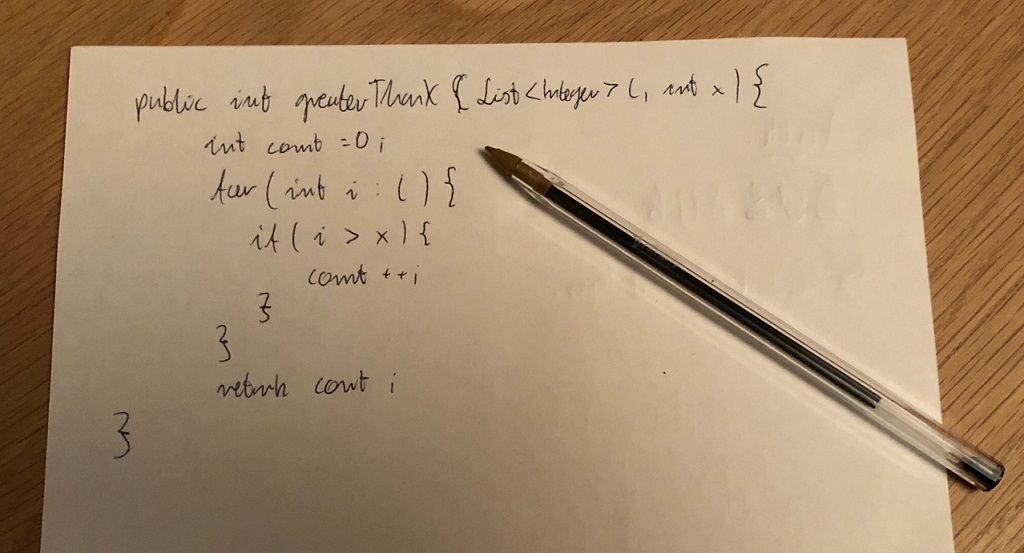 public int greaterThanX (List<Integer> l, int x) {
int count = 0;
for (int i : l) {
if (i > x) {
count ++;
}
}
return count;
}